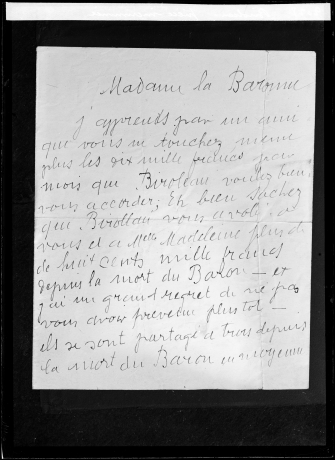 Madame la Baronne
j'apprends par un ami
que vous ne touchez meme
plus les dix mille francs par
mois que Birolleau voulez bien
vous accorder; Eh bien sachez
que Birolleau vous a volé
vous et a Melle Madeleine plus de
de huit cents mille francs
depuis la mort du Baron — et
j'ai un grand regret de ne pas
vous avoir prevenu plustot —
ils se sont partagé a trois depuis
la mort du Baron en moyenne